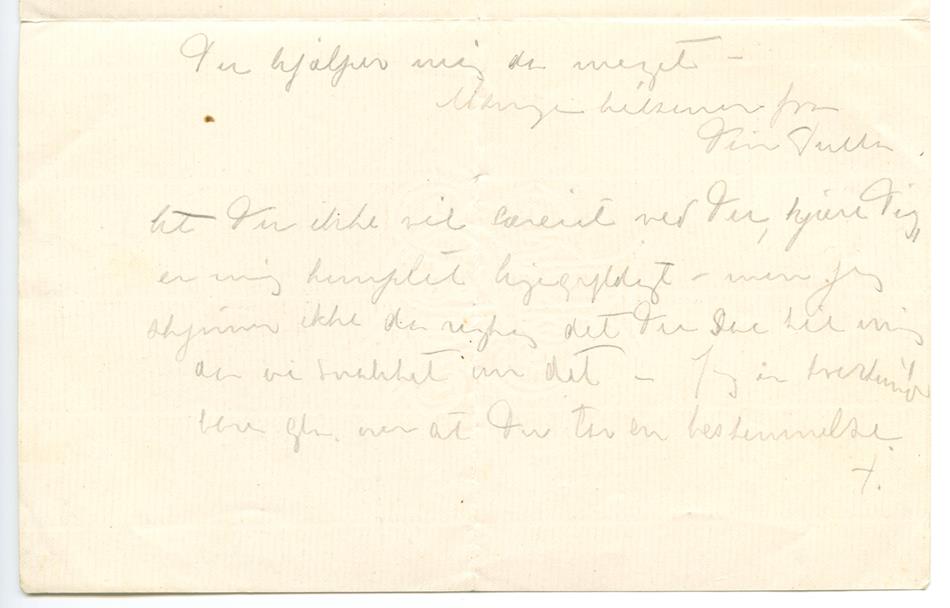 Du hjælper mig da meget –
Mange hilsener fra
Din Tulla
At Du ikke vil ved Du, kjære Dig,
er mig komplet ligegyldigt – men jeg
skjønner ikke da rigtig det Du sae til mig
da vi snakket om det – Jeg er
bare gla. over at Du tar en bestemmelse.
T.